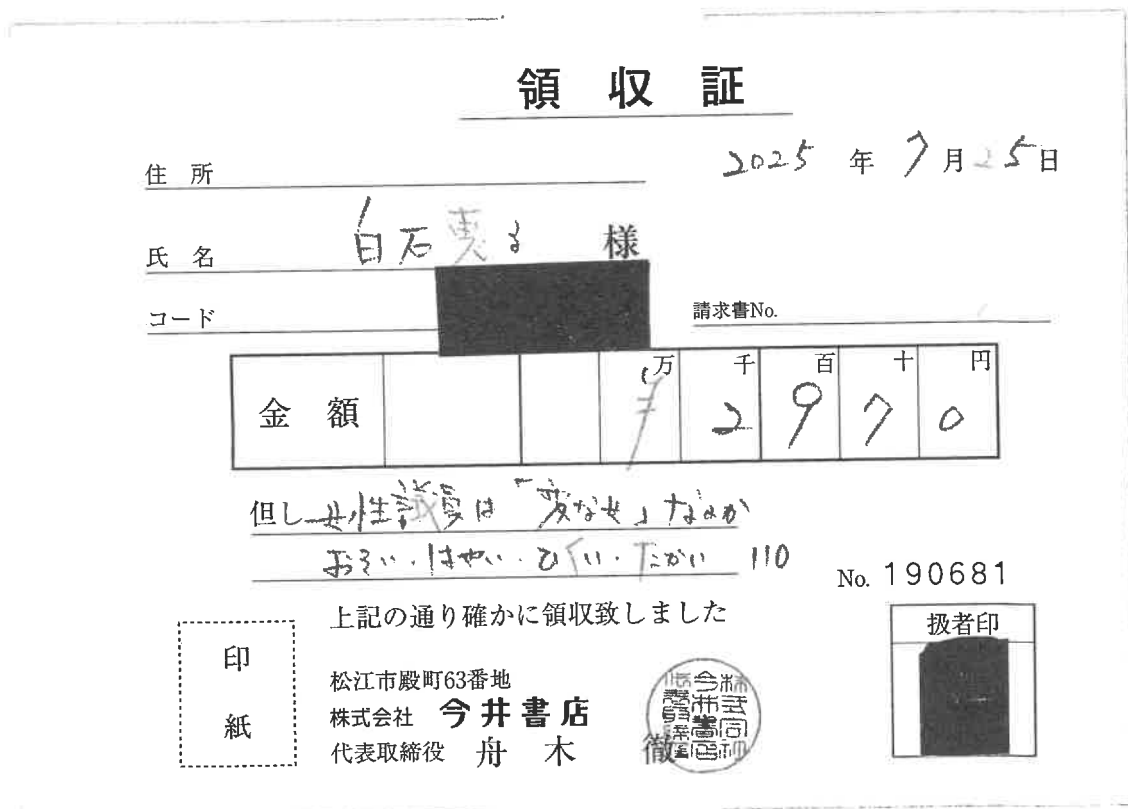 領収証
2025年7月25日
住所
氏名 白石恵子 様
コード
請求書No.
金額 万 千 百 十 円
¥ 2 9 7 0
但し 女性議員は「変な女」なのか
おそい・はやい・ひくい・たかい 110
No. 190681
上記の通り確かに領収致しました
扱者印
印紙
松江市殿町63番地
株式会社 今井書店
代表取締役 舟木 徹